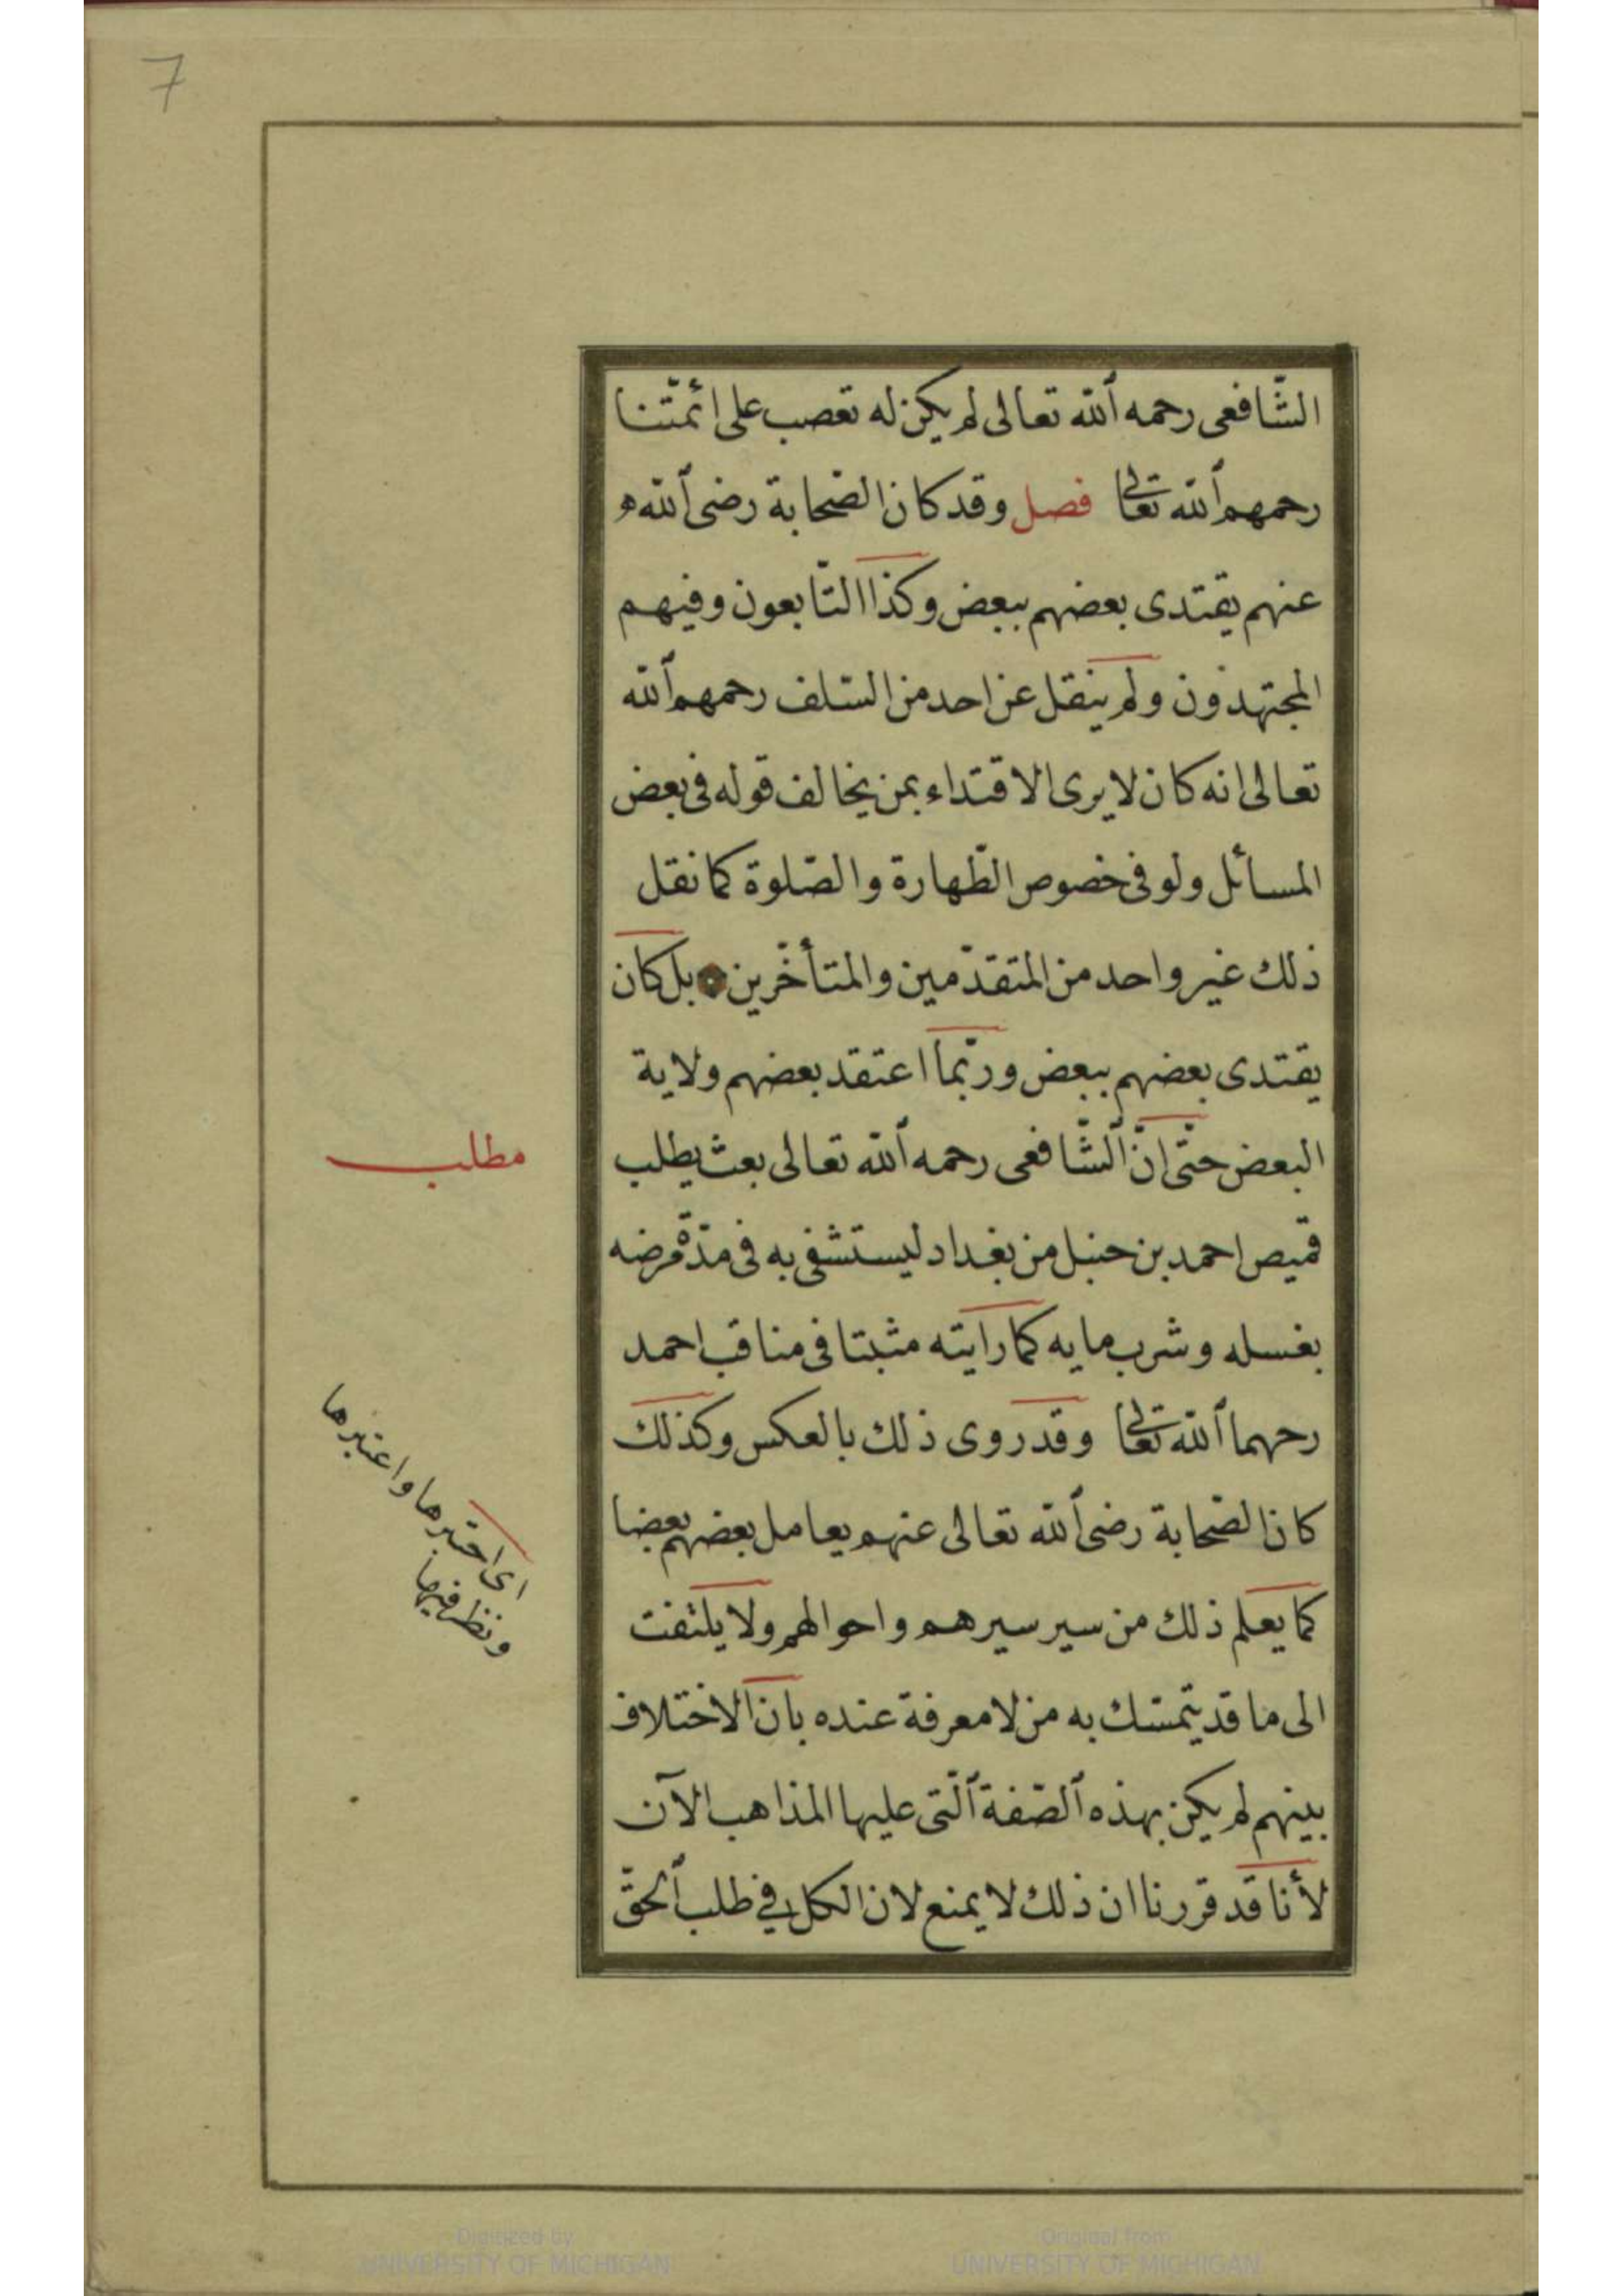 7
الشّافعى رحمه ٱلله تعالى لم يكن له تعصب على ائمّتنا
رحمهم ٱلله تعالى فصل وقد كان الصّحابة رضى ٱلله
عنهم يقتدى بعضهم ببعض وكذا التّابعون وفيهم
المجتهدون ولم ينقل عن احد من السّلف رحمهم ٱلله
تعالى انه كان لا يرى الاقتداء بمن يخالف قوله فى بعض
المسائل ولو فى خصوص الطّهارة والصّلوة كما نقل
ذلك غير واحد من المتقدّمين والمتأخّرين بل كان
يقتدى بعضهم ببعض وربّما اعتقد بعضهم ولاية
البعض حتّى انّ ٱلشّافعى رحمه ٱلله تعالى بعث يطلب
مطلب
قميص احمد بن حنبل من بغداد ليستشفى به فى مدّة مرضه
بغسله وشرب مايه كما رايته مثبتا فى مناقب احمد
رحهما ٱلله تعالى وقد روى ذلك بالعكس وكذلك
كان الصّحابة رضى ٱلله تعالى عنهم يعامل بعضهم بعضا
كما يعلم ذلك من سير سيرهم واحوالهم ولا يلتفت
اى اختبرها واعتبرها
ونظر فيها
الى ما قد يتمسّك به من لا معرفة عنده بان الاختلاف
بينهم لم يكن بهذه ٱلصّفة ٱلّتى عليها المذاهب الآن
لأنا قد قررنا ان ذلك لا يمنع لان الكل فى طلب ٱلحقّ
Digitized by
UNIVERSITY OF MICHIGAN
Original from
UNIVERSITY OF MICHIGAN